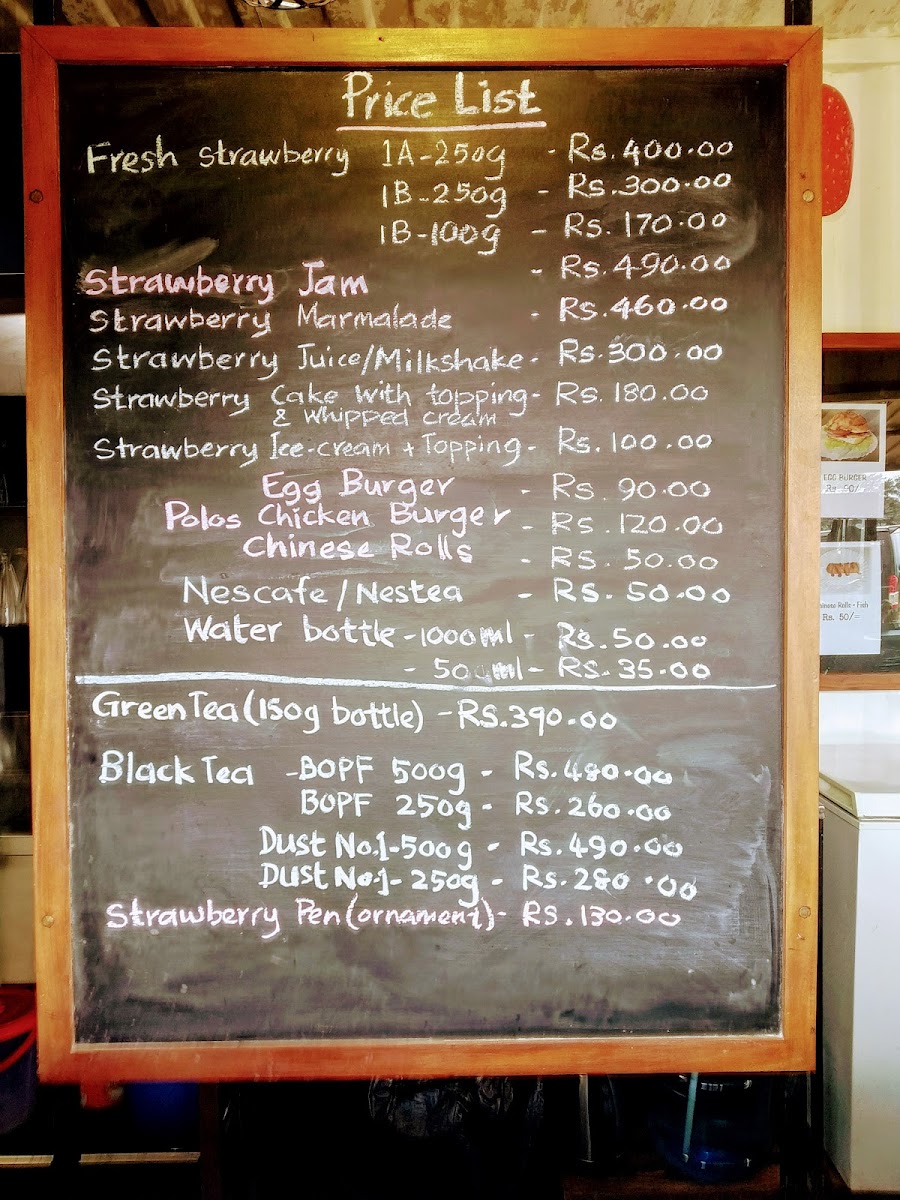 Price List
Fresh strawberry 1A-250g - Rs.400.00
1B-250g - Rs.300.00
1B-100g - Rs. 170.00
Strawberry Jam - Rs.490.00
Strawberry Marmalade - Rs.460.00
Strawberry Juice/Milkshake - Rs.300.00
Strawberry Cake with topping - Rs. 180.00
& whipped cream
Strawberry Ice-cream + Topping - Rs. 100.00
Egg Burger - Rs. 90.00
Polos Chicken Burger - Rs. 120.00
Chinese Rolls - Rs. 50.00
Nescafe/Nestea - Rs. 50.00
Water bottle - 1000ml - Rs.50.00
- 500ml - Rs.35.00
Green Tea (150g bottle) - RS.390.00
Black Tea - BOPF 500g - Rs.480.00
BOPF 250g - Rs.260.00
Dust No.1-500g - Rs.490.00
Dust No.1-250g - Rs.280.00
Strawberry Pen (ornament) - RS.130.00
EGG BURGER
Rs. 90/-
Rolls - Fish
Rs. 50/=